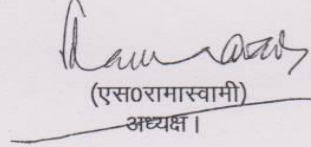 (एस0रामास्वामी)
अध्यक्ष।